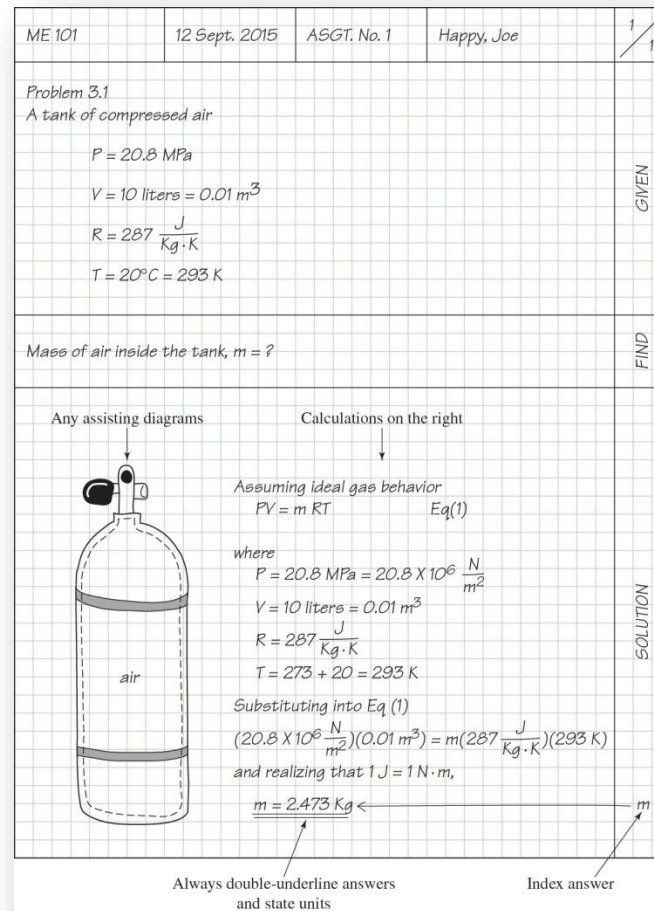 ME 101 12 Sept. 2015 ASGT. No. 1 Happy, Joe 1/1
Problem 3.1
A tank of compressed air
P = 20.8 MPa
V = 10 liters = 0.01 m³
R = 287 J/Kg·K
T = 20°C = 293 K
GIVEN
Mass of air inside the tank, m = ?
FIND
Any assisting diagrams
Calculations on the right
air
Assuming ideal gas behavior
PV = m RT Eq(1)
where
P = 20.8 MPa = 20.8 X 10⁶ N/m²
V = 10 liters = 0.01 m³
R = 287 J/Kg·K
T = 273 + 20 = 293 K
Substituting into Eq (1)
(20.8 X 10⁶ N/m²)(0.01 m³) = m(287 J/Kg·K)(293 K)
and realizing that 1 J = 1 N·m,
m = 2.473 Kg m
SOLUTION
Always double-underline answers
and state units
Index answer